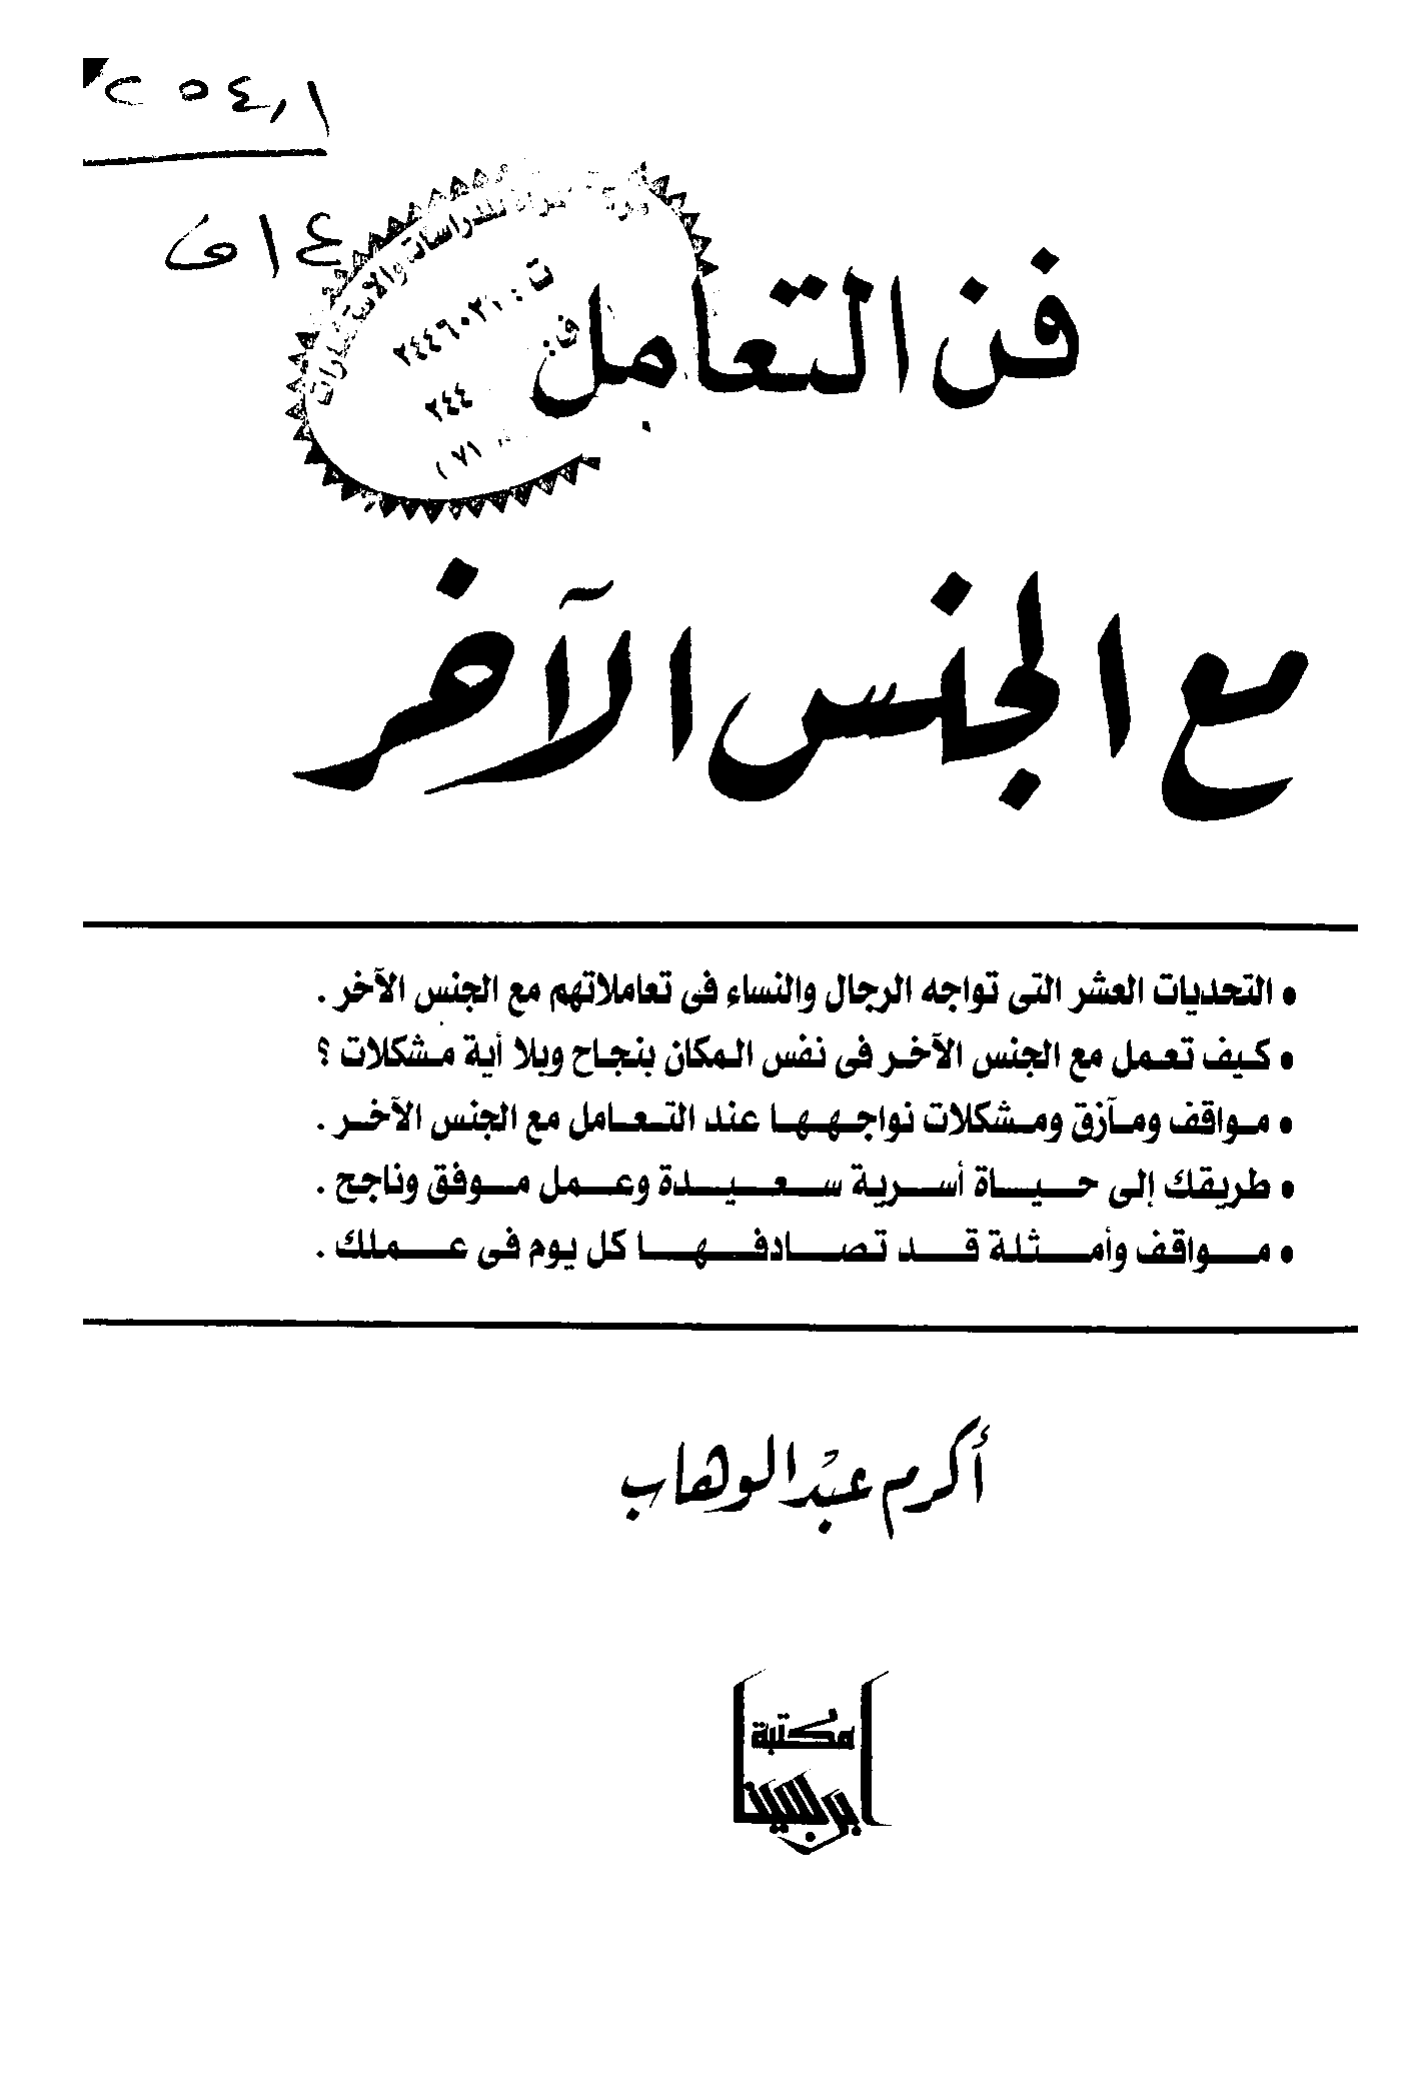 فن التعامل
مع الجنس الآخر
• التحديات العشر التى تواجه الرجال والنساء فى تعاملاتهم مع الجنس الآخر .
• كيف تعمل مع الجنس الآخر فى نفس المكان بنجاح وبلا أية مشكلات ؟
• مواقف ومآزق ومشكلات نواجهها عند التعامل مع الجنس الآخر .
• طريقك إلى حياة أسرية سعيدة وعمل موفق وناجح .
• مواقف وأمثلة قد تصادفها كل يوم فى عملك .
أكرم عبد الوهاب
مكتبة
ابن سينا